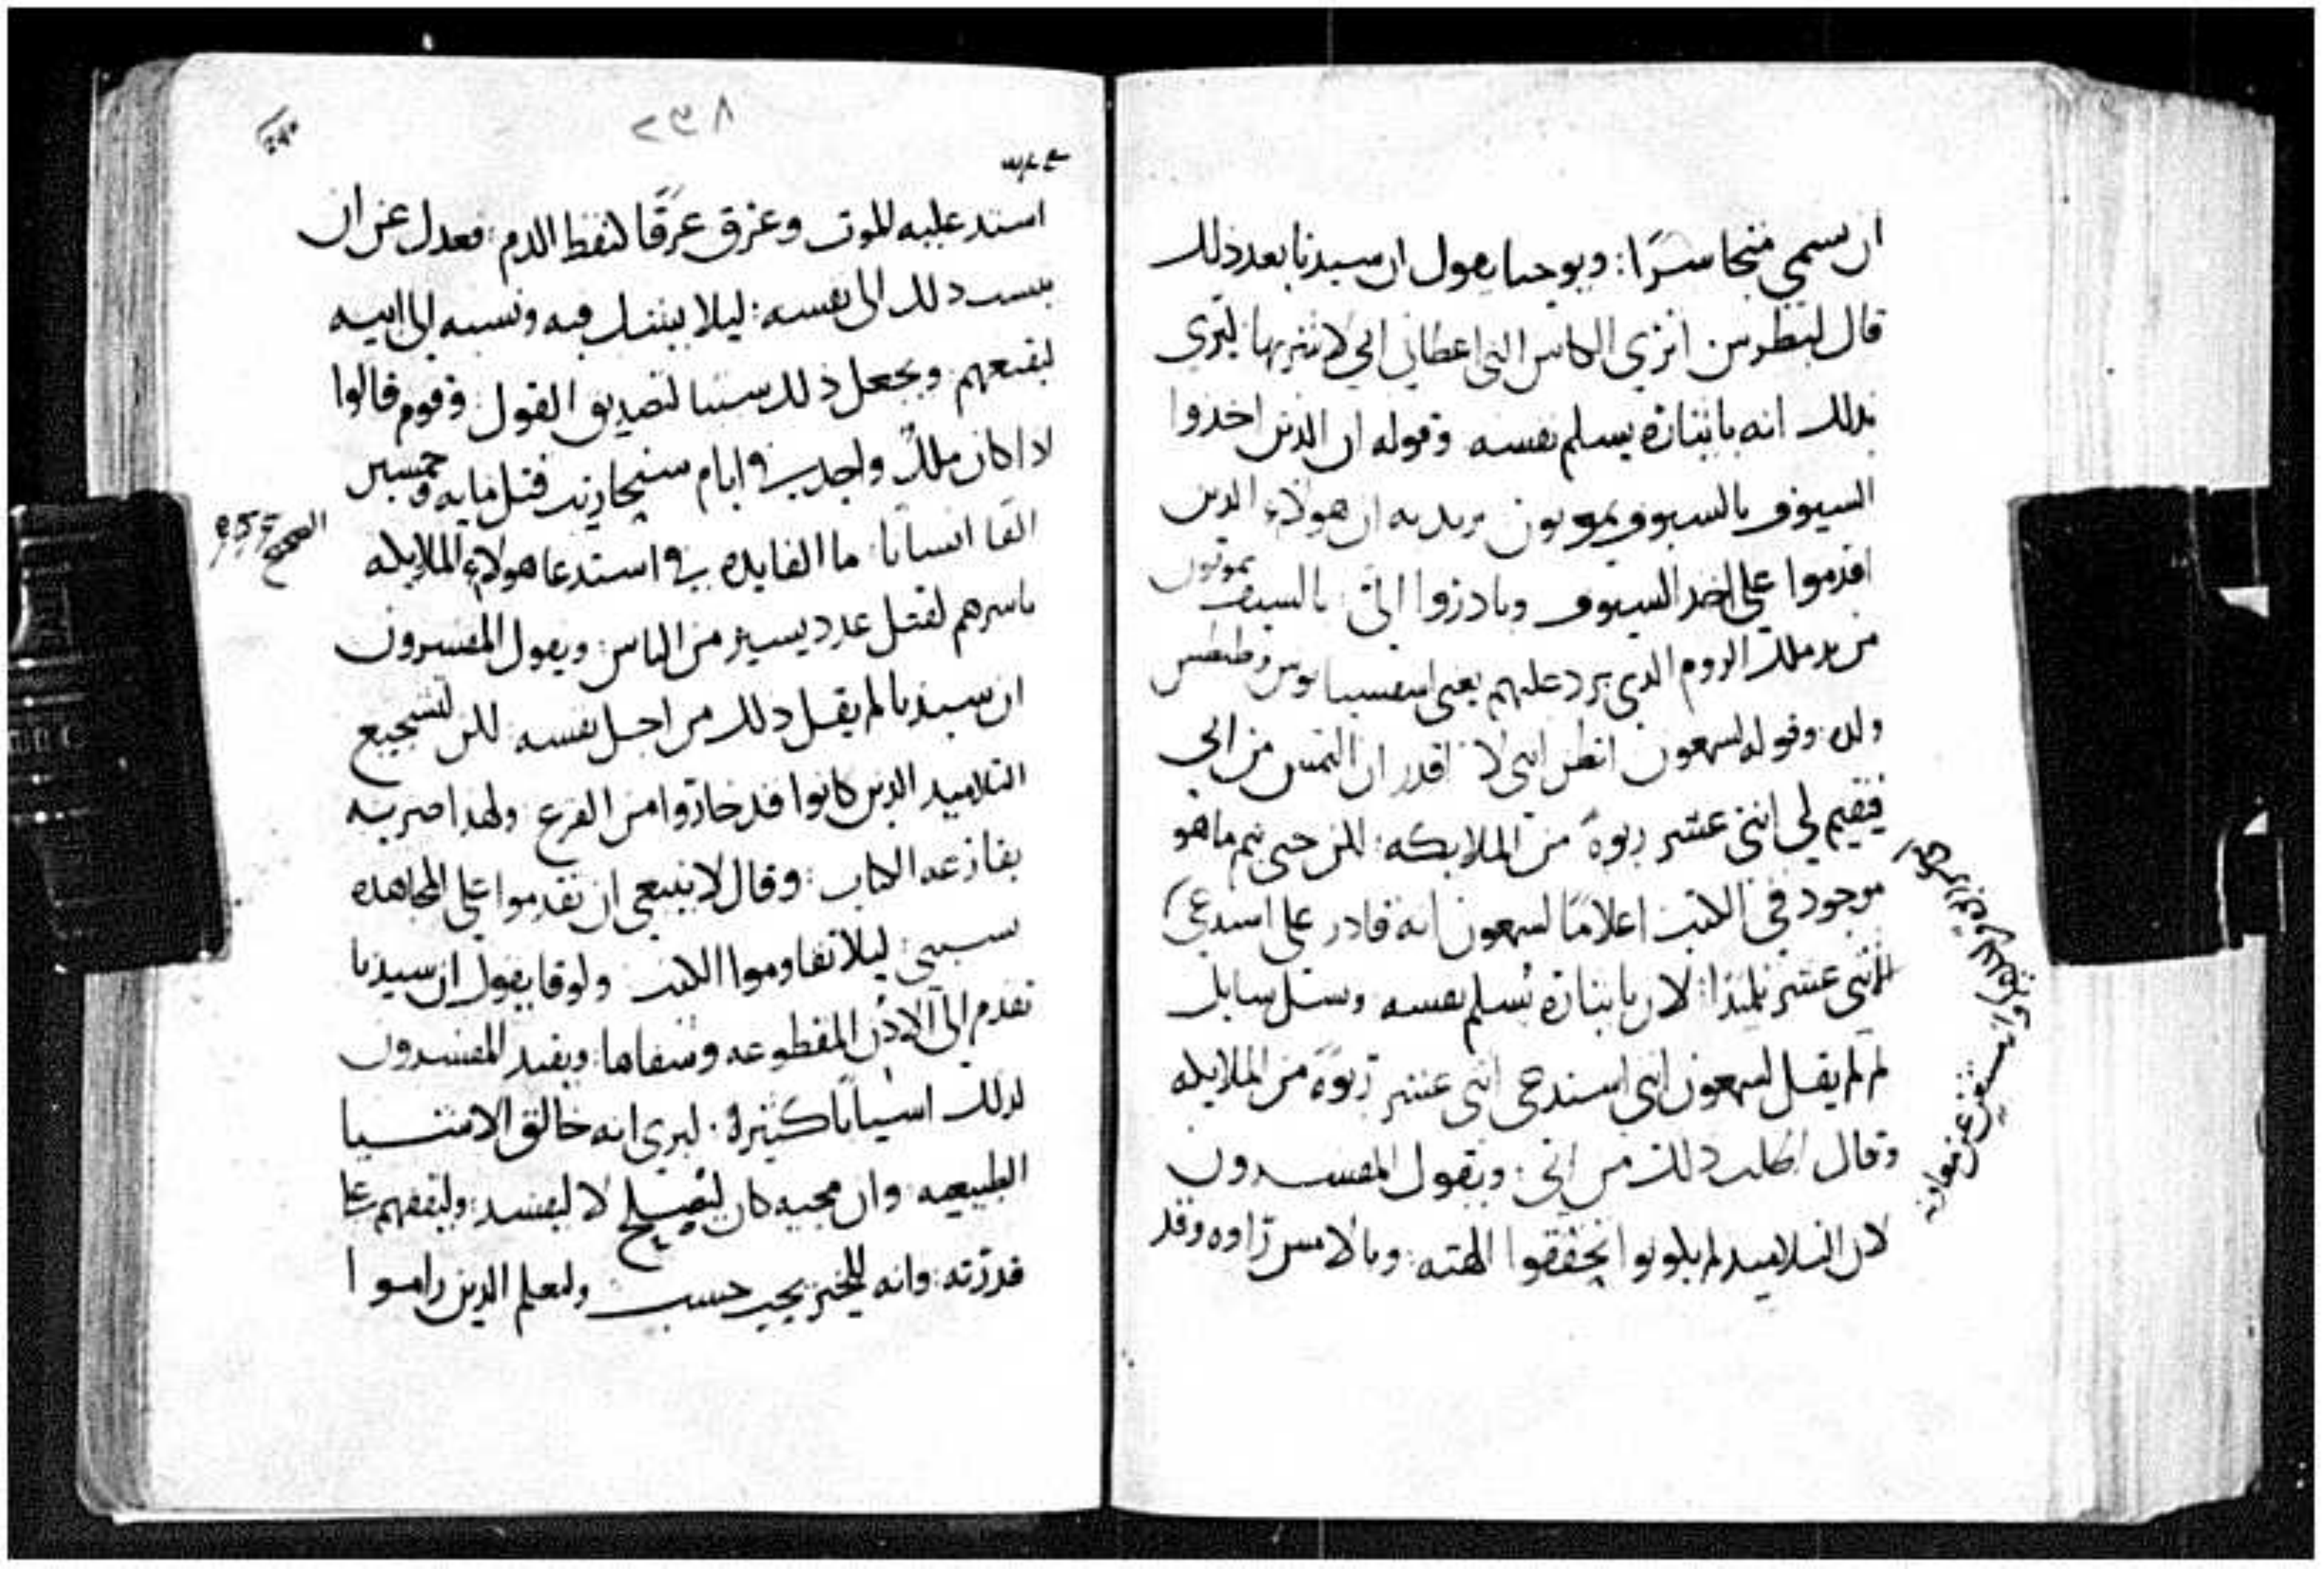 ان سمي منجا سرًا: ويوحنا يقول ان سيدنا بعد ذلك
قال لبطرس انزي الكاس التي اعطاني ابي لا اشربها: ليري
بذلك انه باينازه يسلم نفسه وقوله ان الذين اخذوا
السيوف بالسيوف يموتون يريد به ان هولاء الذين
اقدموا علي اخذ السيوف وبادروا الي: بالسيف يموتون
من يد ملك الروم الذي يرد عليهم يعني اسفسيانوس وطيطس
ولده: وقوله لسمعون اتظن انني لا اقدر ان التمس من ابي
فيقيم لي اثني عشر ربوةً من الملايكه: لكن حتي يتم ما هو
موجود في الكتب اعلامًا لسمعون انه قادر علي استدعي
اثني عشر تلميذا: لان باينازه يُسلم نفسه وسيل سايل
لِمَ لم يقل لسمعون انني استدعي اثني عشر ربوةً من الملايكه
وقال اطلب ذلك من ابي: ويقول المفسرون
لان التلاميد لم يكونوا تحققوا الهته: وبالامس راوه وقد
وانه مستغن عن معاونه
٢٣٨
اشتد عليه الموت وعرق عَرقًا كنقط الدم: فعدل عن ان
ينسب ذلك الي نفسه: ليلا يشك فيه ونسبه الي ابيه
ليقنعهم ويجعل ذلك سببا لتصديق القول: وقوم قالوا
لا اكان ملكٌ واحد في ايام سنحاريب قتل مايه وخمسين
الفا انسانا: ما الفايده في استدعا هولاء الملايكه
باسرهم لقتل عدد يسير من الناس: ويقول المفسرون
ان سيدنا لم يقل ذلك من اجل نفسه: لكن لتشجيع
التلاميد الذين كانوا قد خاروا من الفزع ولهذا اصرنه
بقازعه الكتاب: وقال لا ينبغي ان تقدموا علي المجاهده
بسببي: ليلا تقاوموا الكتب ولوقا يقول ان سيدنا
تقدم الي الاذن المقطوعه وشفاها: ويفيد المفسرون
لذلك اسبابًا كثيرهً: ليري انه خالق الاشيا
الطبيعيه: وان مجيه كان ليُصلح لا ليفسد: وليقفهم علي
قدرته: وانه للخير يحب حسب وليعلم الذين راموا
الصحيح